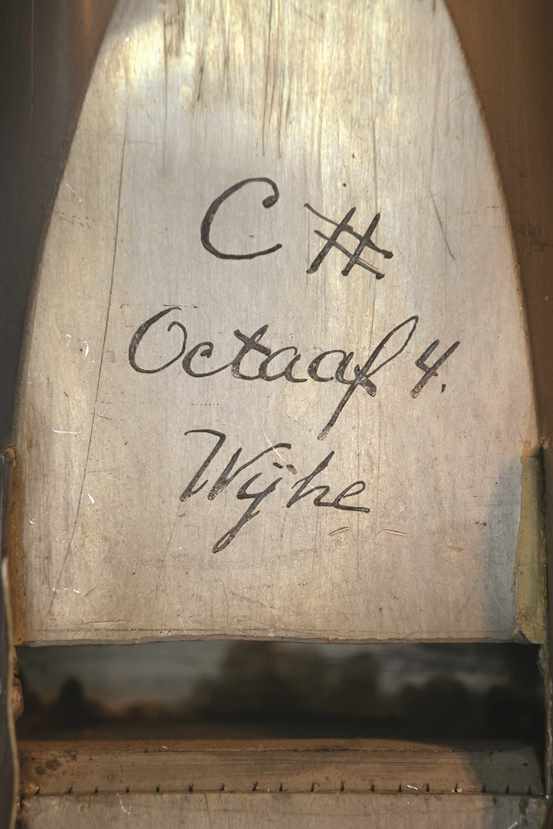 C #
Octaaf 4.
Wijhe